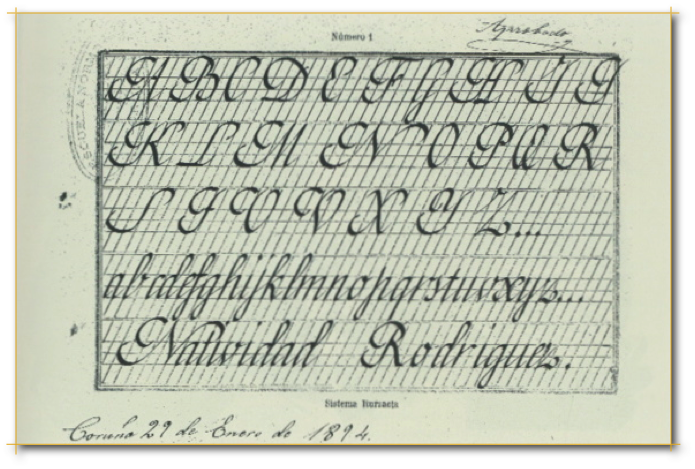 Número 1
Aprobado
A B C D E F G H I J
K L M N Ñ O P Q R
S T U V X Y Z...
abcdefghijklmnopqrstuvxyz...
Natividad Rodriguez.
Sistema Iturzaeta
Coruña 29 de Enero de 1894.
ESCUELA NORMAL